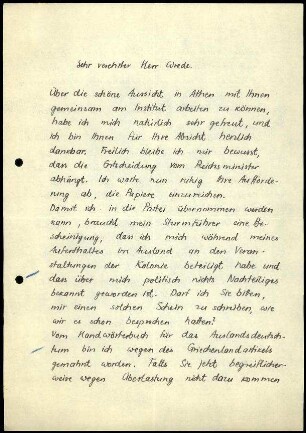 Sehr verehrter Herr Wrede.
Über die schöne Aussicht, in Athen mit Ihnen
gemeinsam am Institut arbeiten zu können,
habe ich mich natürlich sehr gefreut, und
ich bin Ihnen für Ihre Absicht herzlich
dankbar. Freilich bleibe ich mir bewusst,
dass die Entscheidung vom Reichsminister
abhängt. Ich warte nun ruhig Ihre Aufforde-
rung ab, die Papiere einzureichen.
Damit ich in die Partei übernommen werden
kann, braucht mein Sturmführer eine Be-
scheinigung, dass ich mich während meines
Aufenthaltes im Ausland an den Veran-
staltungen der Kolonie beteiligt habe und
dass über mich politisch nichts Nachteiliges
bekannt geworden ist. Darf ich Sie bitten,
mir einen solchen Schein zu schreiben, wie
wir es schon besprochen hatten?
Vom Handwörterbuch für das Auslandsdeutsch-
tum bin ich wegen des Griechenlandartikels
gemahnt worden. Falls Sie jetzt begreiflicher-
weise wegen Überlastung nicht dazu kommen